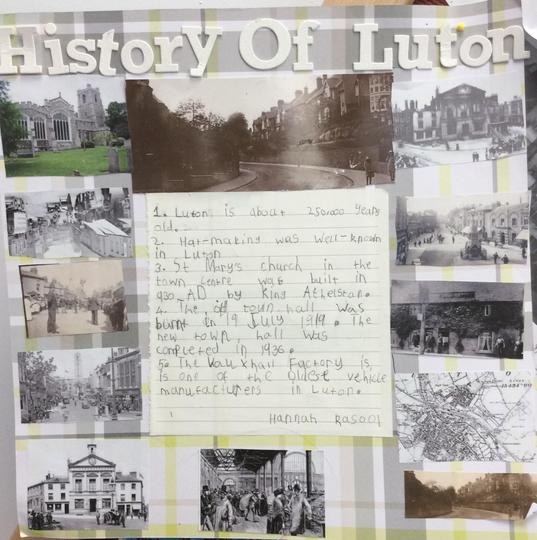 History Of Luton
1. Luton is about 250000 years
old.
2. Hat-making was well-known
in Luton
3. St Mary's church in the
town centre was built in
930 AD by King Athelstan.
4. The old town hall was
burnt in 19 July 1919. The
new town, hall was
completed in 1936.
5. The Vauxhall Factory is,
is one of the oldest vehicle
manufacturers in Luton.
Hannah Rasool